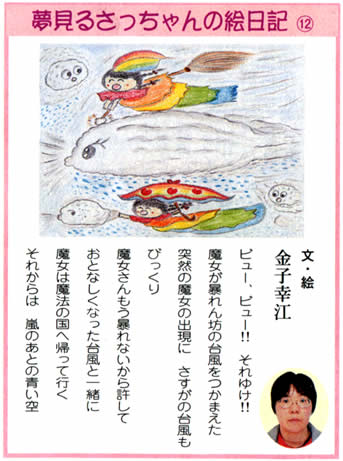 夢見るさっちゃんの絵日記 ⑫
文・絵
金子幸江
ピュー、ピュー!! それゆけ!!
魔女が暴れん坊の台風をつかまえた
突然の魔女の出現に さすがの台風も
びっくり
魔女さんもう暴れないから許して
おとなしくなった台風と一緒に
魔女は魔法の国へ帰って行く
それからは 嵐のあとの青い空